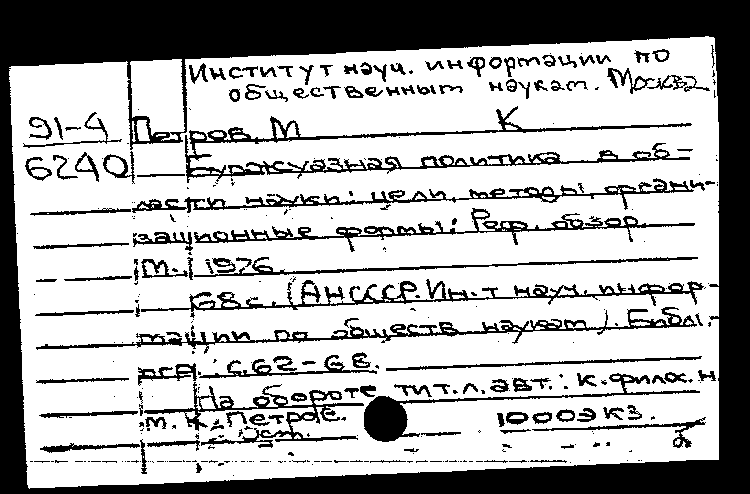 Институт науч. информации по
общественным наукам. Москва
91-4
6240
Петров, М К
Буржуазная политика в об-
ласти науки: цели, методы, органи-
зационные формы: Реф. обзор.
М., 1976.
68 с. (АНСССР. Ин-т науч. инфор-
мации по обществ наукам). Библи-
огр.: с. 62-68.
На обороте тит.л. авт.: к. филос. н.
М. К. Петров.
1000экз.